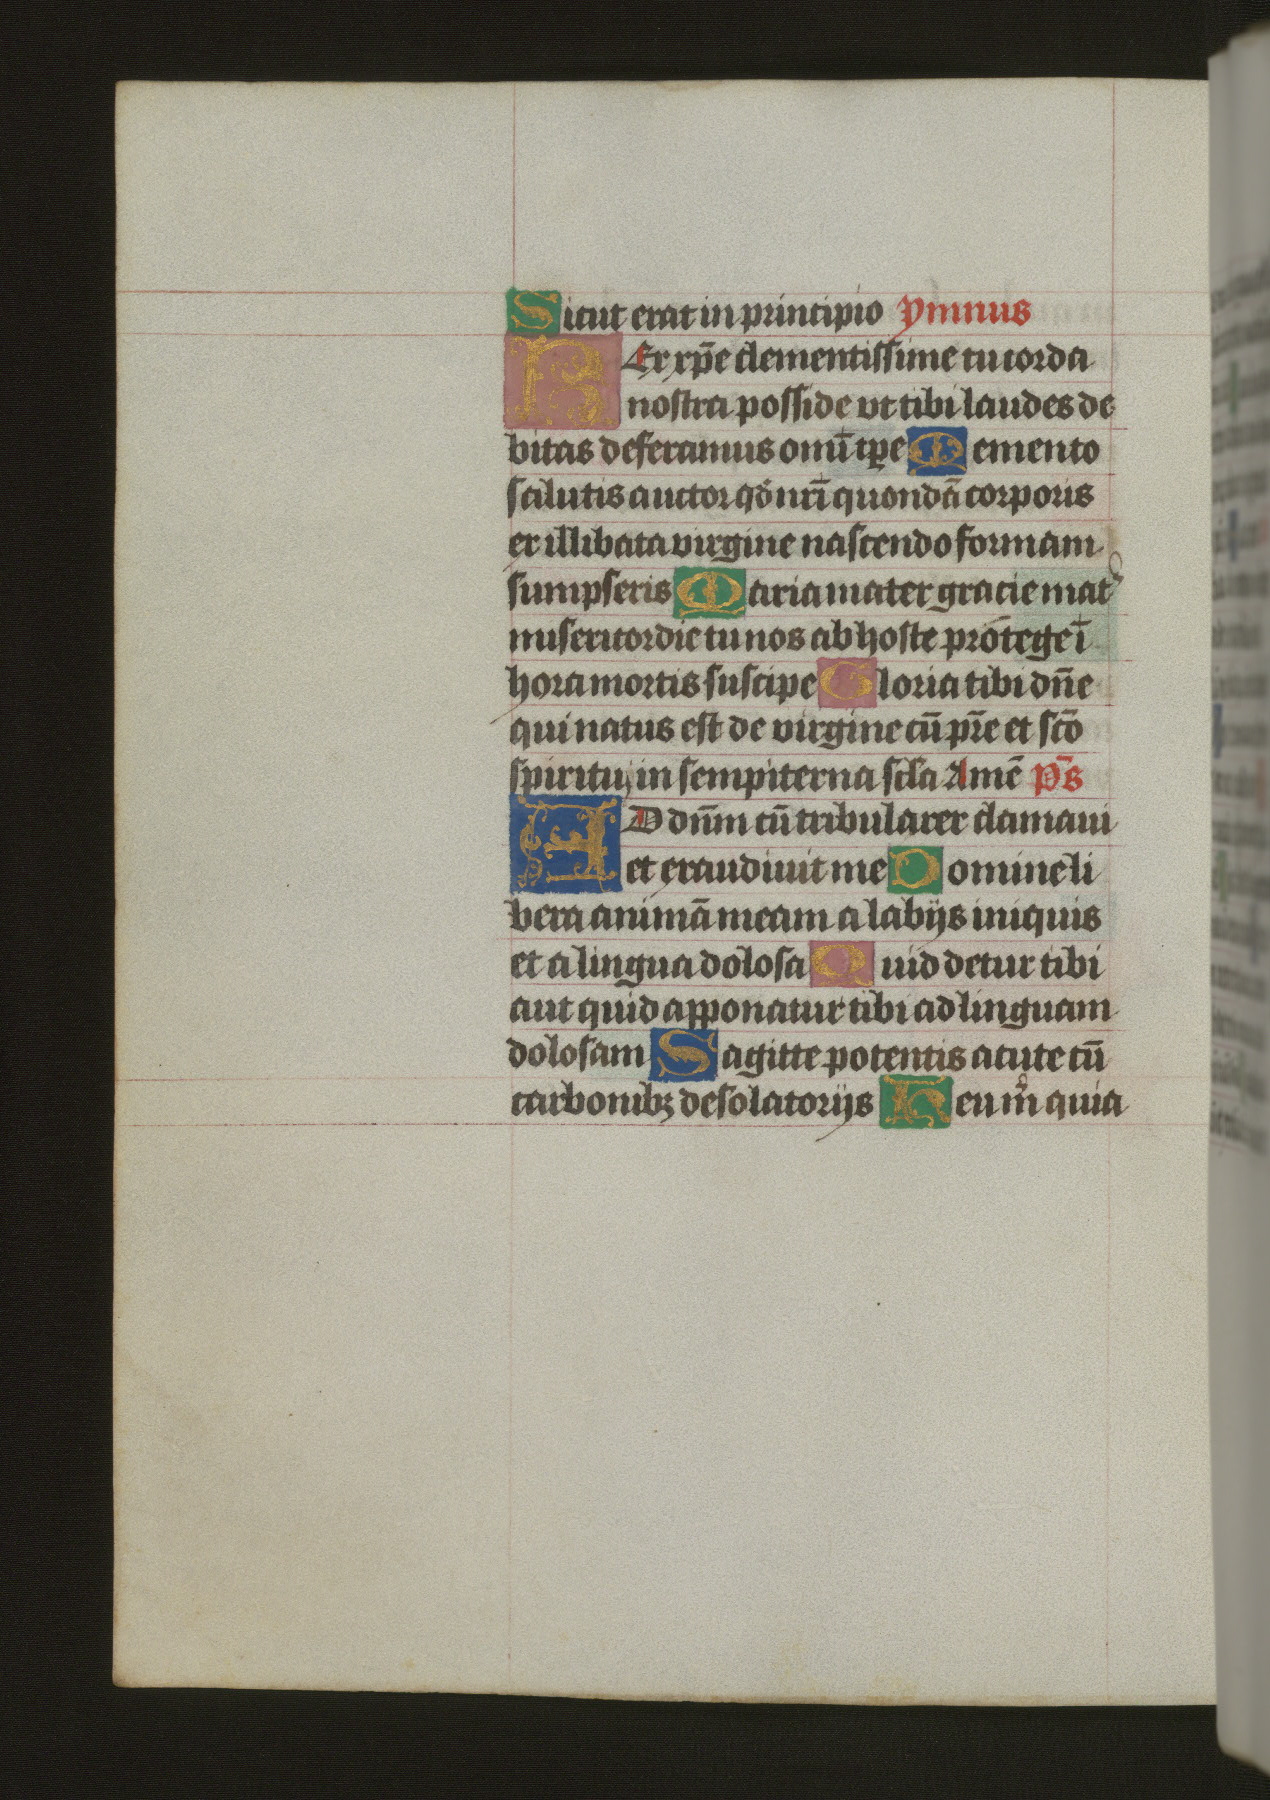 Sicut erat in principio ymnus
REx xp̄e clementissime tu corda
nostra posside vt tibi laudes de
bitas deferamus omni̅ tp̅e Memento
salutis auctor qd̓ nr̄i quondā corporis
ex illibata virgine nascendo formam
sumpseris Maria mater gracie mat᷒
misericordie tu nos ab hoste protege ī
hora mortis suscipe Gloria tibi dn̄e
qui natus est de virgine cū pr̄e et sc̄o
spiritu in sempiterna sc̄la Amē ps̄
AD dn̄m cū tribularer clamaui
et exaudiuit me Domine li
bera animā meam a labijs iniquis
et a lingua dolosa Quid detur tibi
aut quid apponatur tibi ad linguam
dolosam Sagitte potentis acute cū
carbonibꝫ desolatorijs Heu m̓ quia